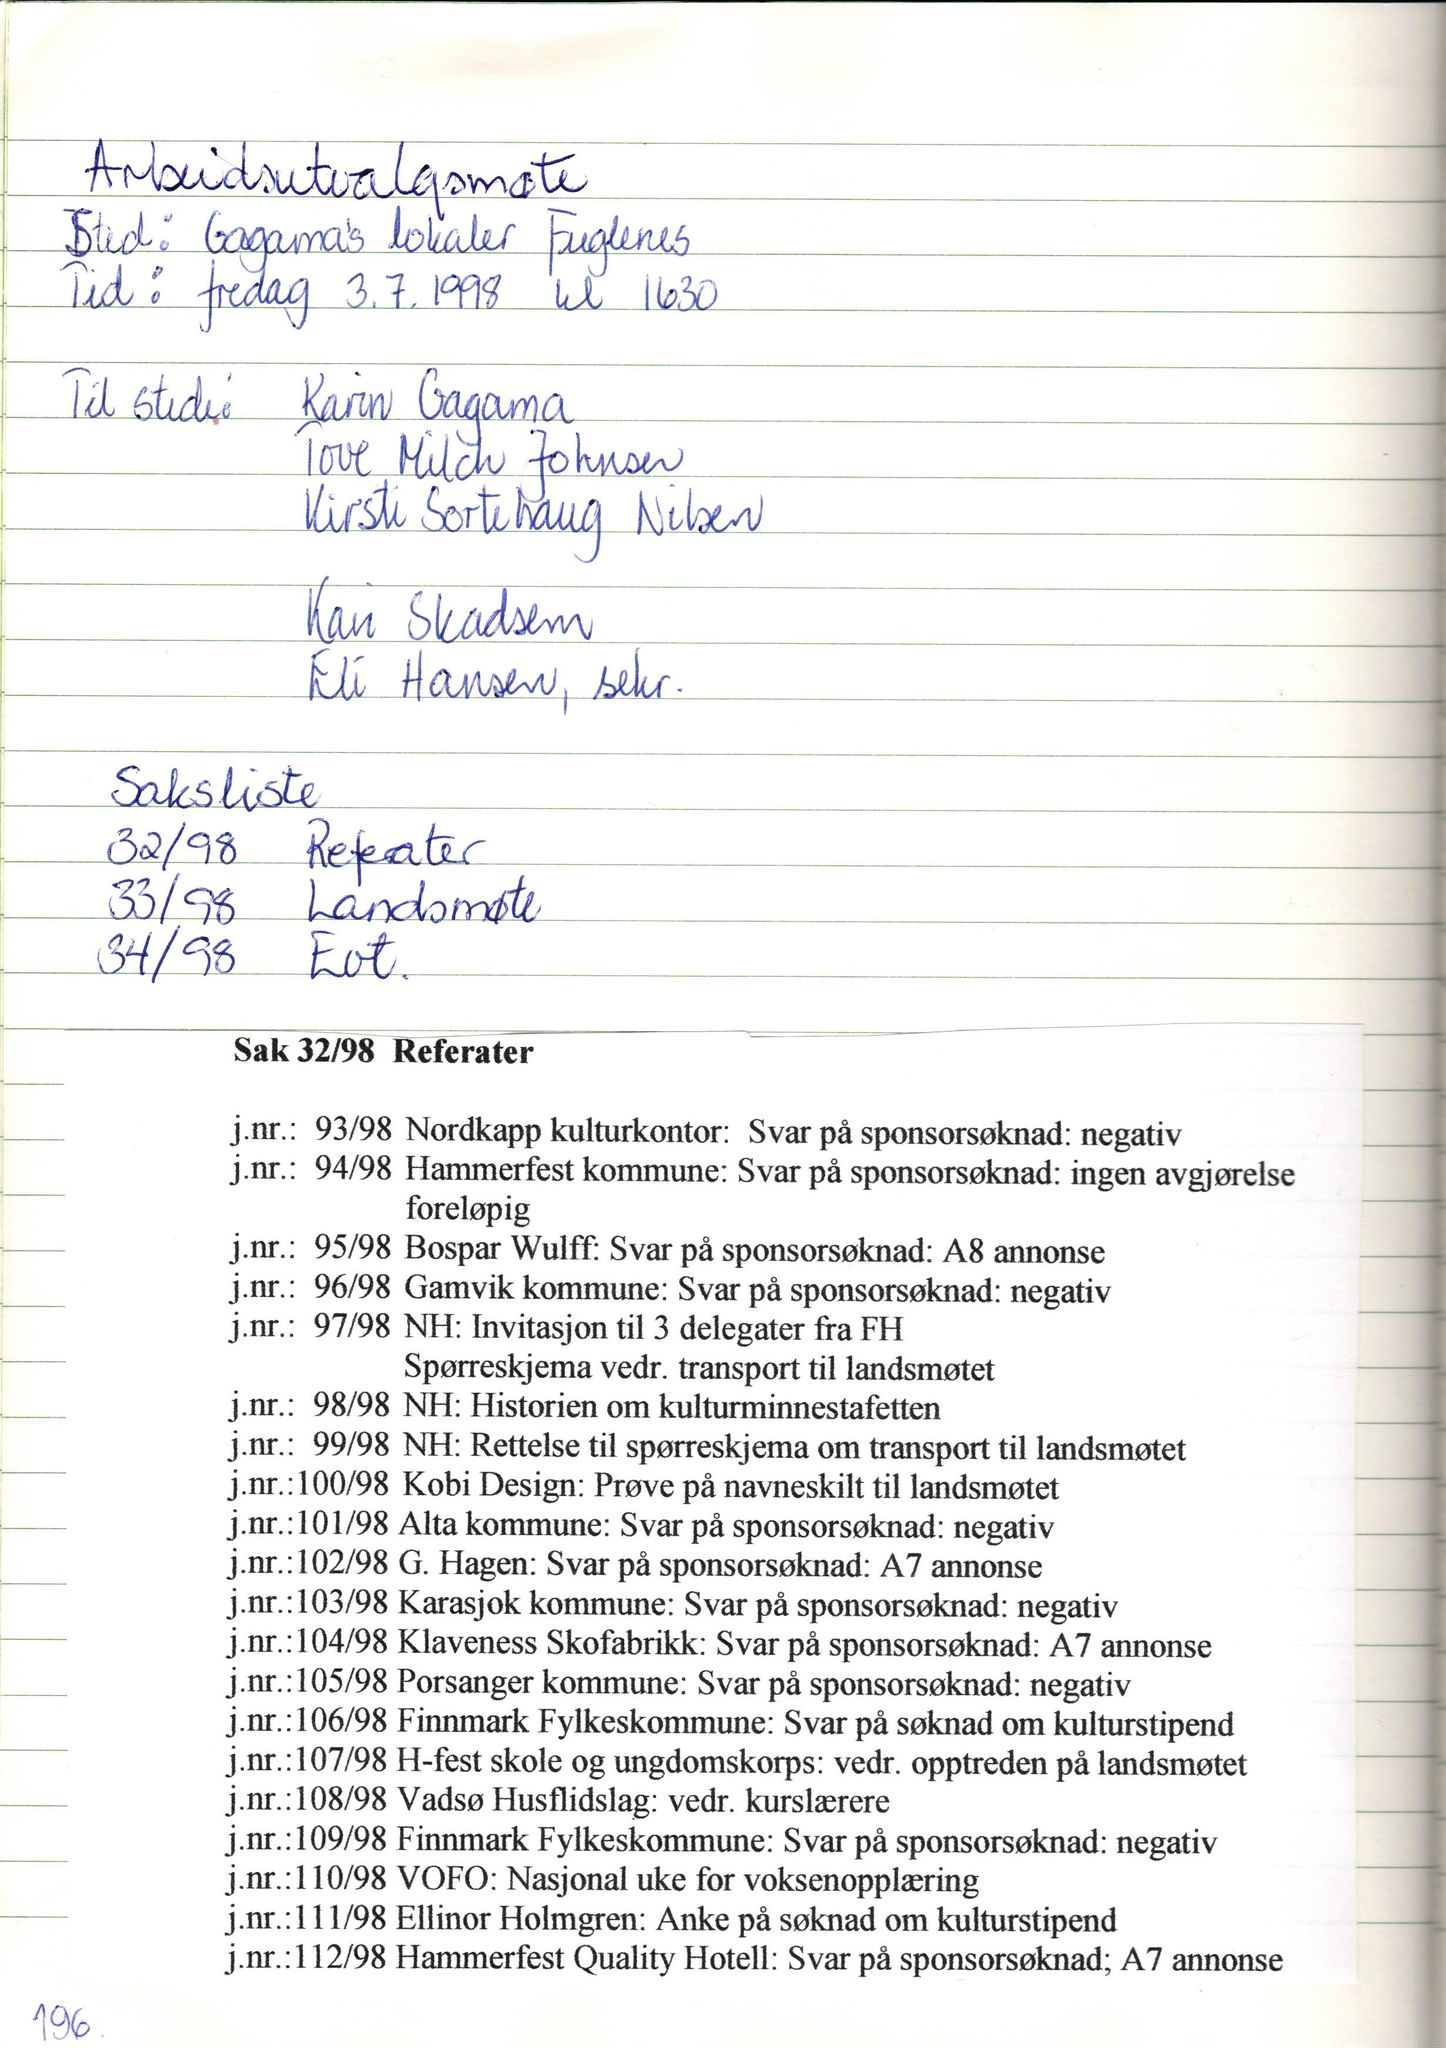 Arbeidsutvalgsmøte
Sted: Gagama's lokaler Fuglenes
Tid: fredag 3.7.1998 kl 1630
Til stede: Karin Gagama
Tove Milch Johnsen
Kirsti Sortehaug Nilsen
Kari Skadsem
Eli Hansen, sekr.
Saksliste
32/98 Referater
33/98 Landsmøte
34/98 Evt.
Sak 32/98 Referater
j.nr.: 93/98 Nordkapp kulturkontor: Svar på sponsorsøknad: negativ
j.nr.: 94/98 Hammerfest kommune: Svar på sponsorsøknad: ingen avgjørelse
foreløpig
j.nr.: 95/98 Bospar Wulff: Svar på sponsorsøknad: A8 annonse
j.nr.: 96/98 Gamvik kommune: Svar på sponsorsøknad: negativ
j.nr.: 97/98 NH: Invitasjon til 3 delegater fra FH
Spørreskjema vedr. transport til landsmøtet
j.nr.: 98/98 NH: Historien om kulturminnestafetten
j.nr.: 99/98 NH: Rettelse til spørreskjema om transport til landsmøtet
j.nr.:100/98 Kobi Design: Prøve på navneskilt til landsmøtet
j.nr.:101/98 Alta kommune: Svar på sponsorsøknad: negativ
j.nr.:102/98 G. Hagen: Svar på sponsorsøknad: A7 annonse
j.nr.:103/98 Karasjok kommune: Svar på sponsorsøknad: negativ
j.nr.:104/98 Klaveness Skofabrikk: Svar på sponsorsøknad: A7 annonse
j.nr.:105/98 Porsanger kommune: Svar på sponsorsøknad: negativ
j.nr.:106/98 Finnmark Fylkeskommune: Svar på søknad om kulturstipend
j.nr.:107/98 H-fest skole og ungdomskorps: vedr. opptreden på landsmøtet
j.nr.:108/98 Vadsø Husflidslag: vedr. kurslærere
j.nr.:109/98 Finnmark Fylkeskommune: Svar på sponsorsøknad: negativ
j.nr.:110/98 VOFO: Nasjonal uke for voksenopplæring
j.nr.:111/98 Ellinor Holmgren: Anke på søknad om kulturstipend
j.nr.:112/98 Hammerfest Quality Hotell: Svar på sponsorsøknad; A7 annonse
196.